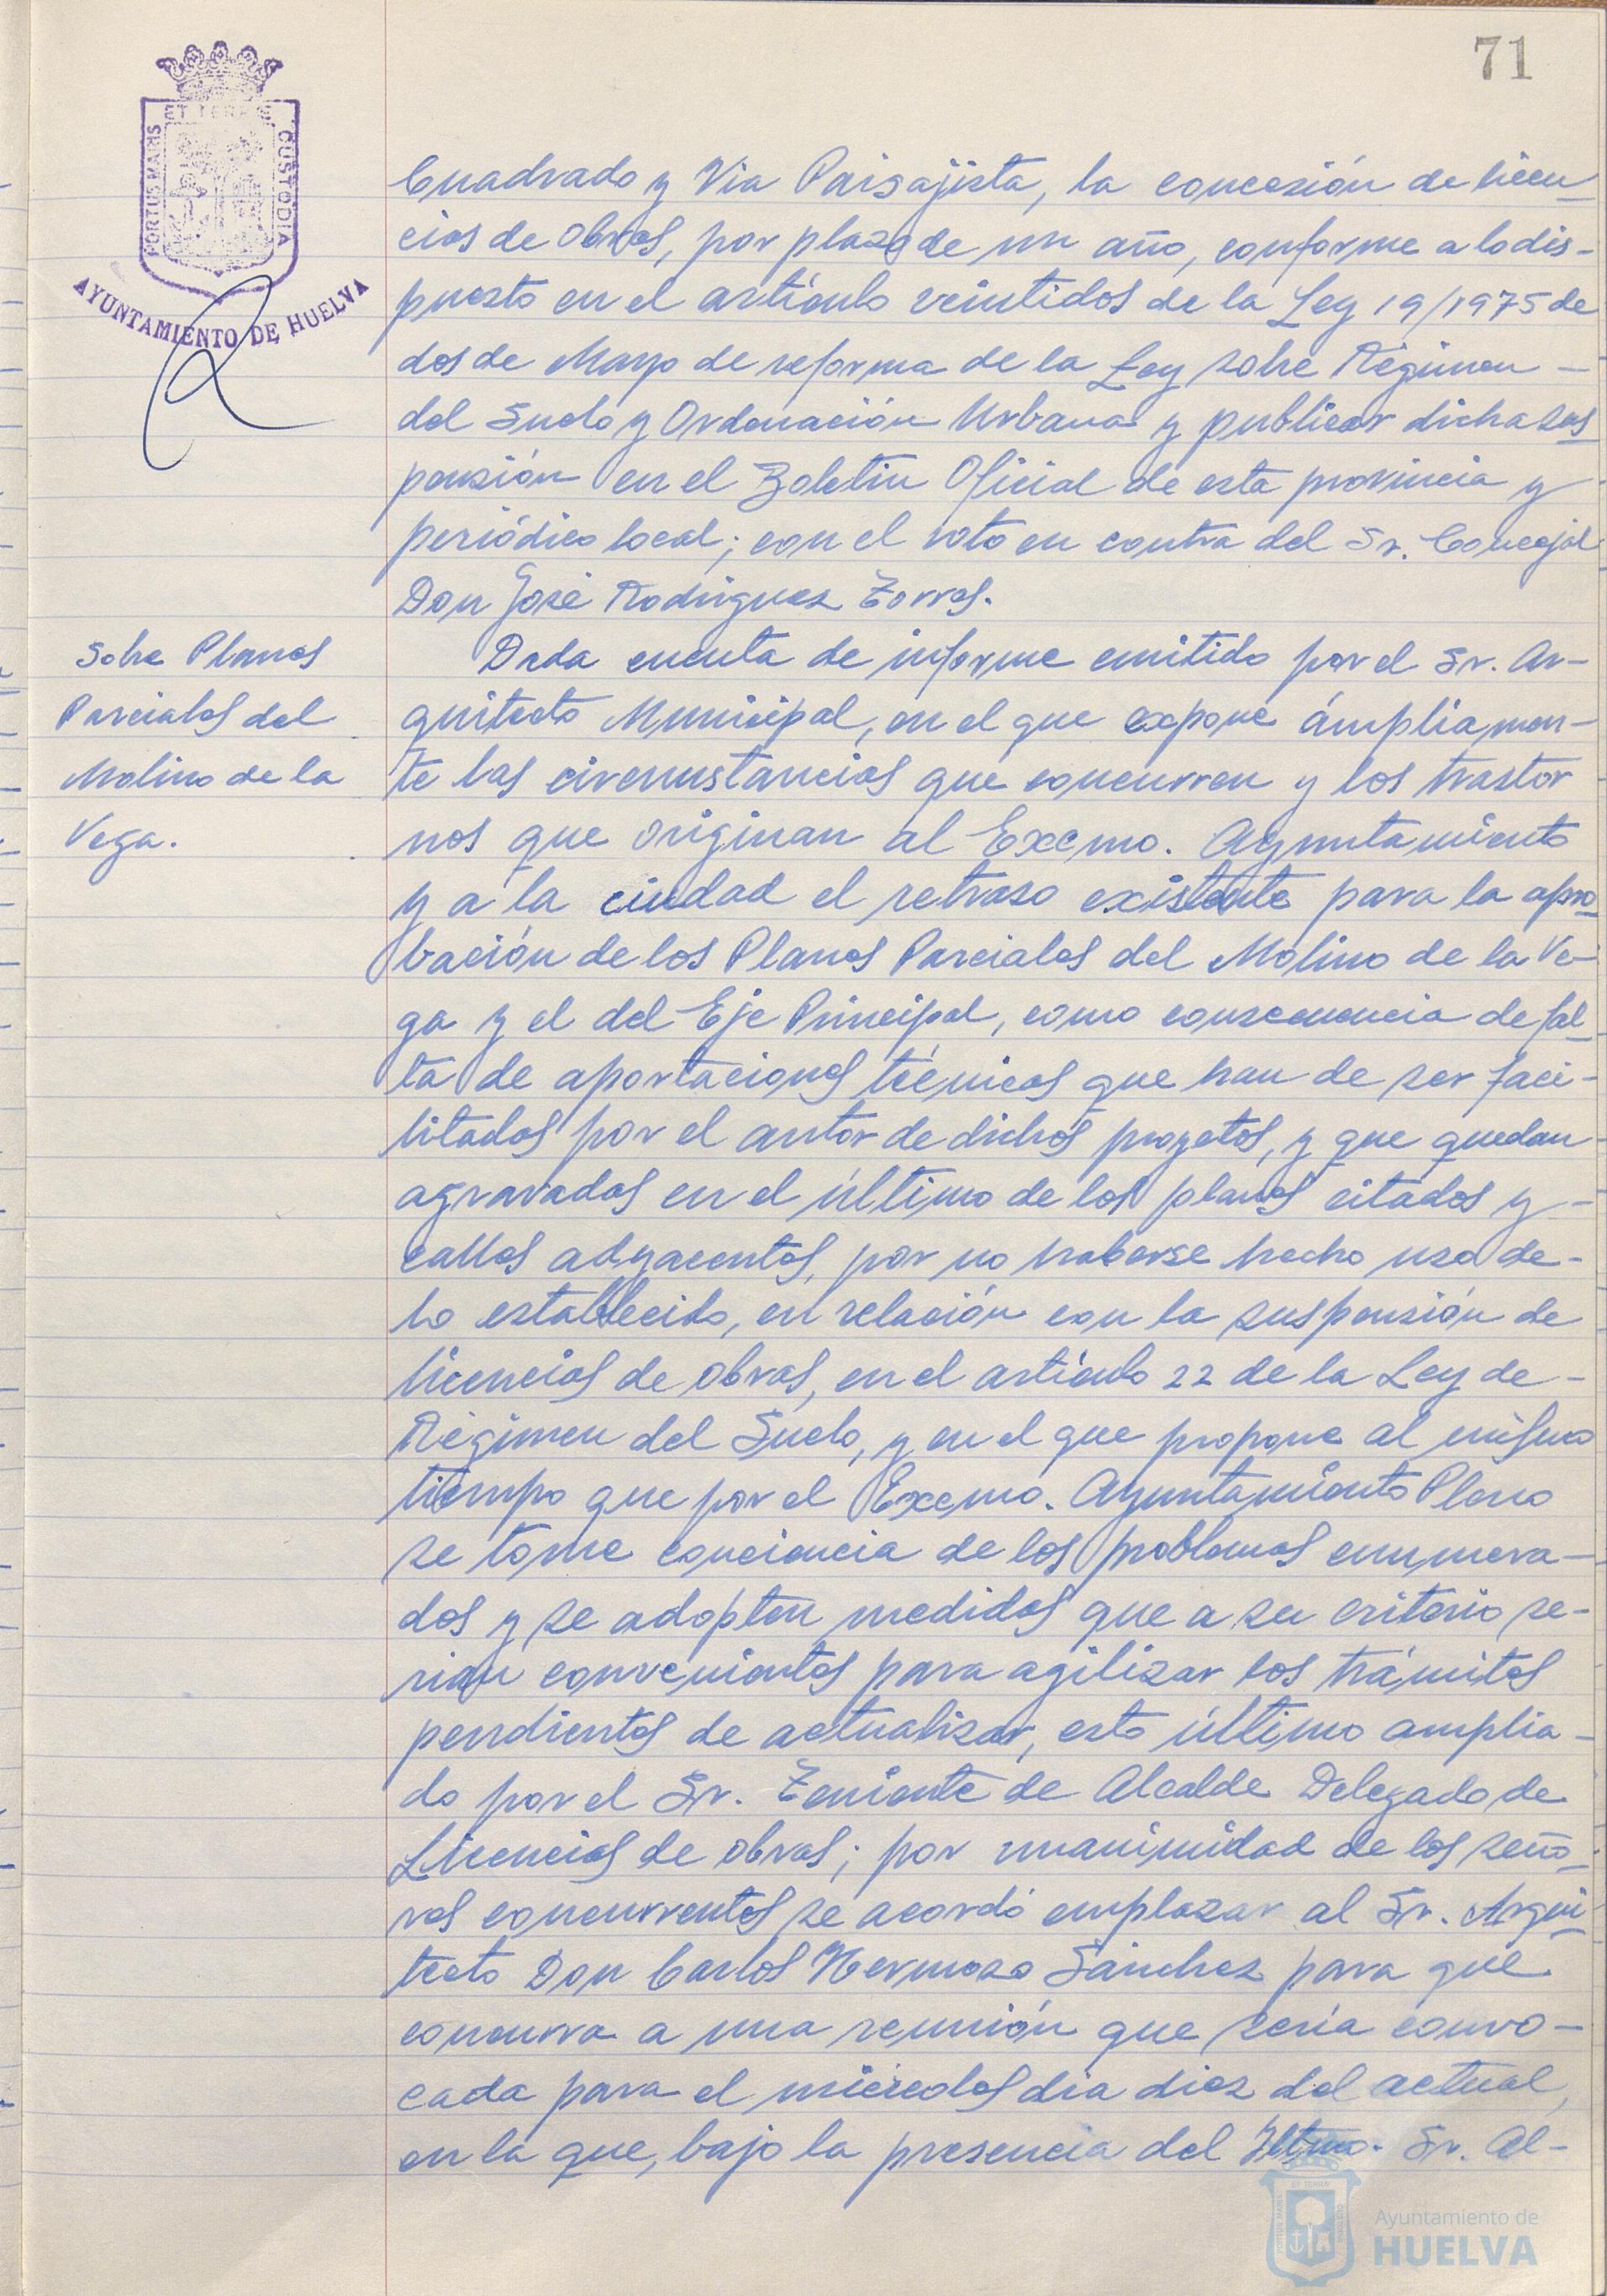 71
ET TERRE
PORTUS MARIS
CUSTODIA
AYUNTAMIENTO DE HUELVA
Cuadrado y Via Paisajista, la concesión de licen
cias de obras, por plazo de un año, conforme a lo dis-
puesto en el artículo veintidos de la Ley 19/1975 de
dos de Mayo de reforma de la Ley sobre Régimen -
del Suelo y Ordenación Urbana y publicar dicha sus
pensión en el Boletin Oficial de esta provincia y
periódico local; con el voto en contra del Sr. Concejal
Don José Rodriguez Torres.
Sobre Planes
Parciales del
Molino de la
Vega.
Dada cuenta de informe emitido por el Sr. Ar-
quitecto Municipal, en el que expone ámpliamen-
te las circunstancias que concurren y los trastor
nos que originan al Excmo. Ayuntamiento
y a la ciudad el retraso existente para la apro
bación de los Planes Parciales del Molino de la Ve-
ga y el del Eje Principal, como consecuencia de fal
ta de aportaciones técnicas que han de ser faci-
litados por el autor de dichos proyetos, y que quedan
agravados en el último de los planes citados y -
calles adyacentes, por no haberse hecho uso de-
lo establecido, en relación con la suspensión de
licencias de obras, en el artículo 22 de la Ley de -
Régimen del Suelo, y en el que propone al mismo
tiempo que por el Excmo. Ayuntamiento Pleno
se tome conciencia de los problemas enumera-
dos y se adopten medidas que a su criterio se-
rian convenientes para agilizar los trámites
pendientes de actualizar, esto último amplia-
do por el Sr. Teniente de Alcalde Delegado de
Licencias de obras; por unanimidad de los seño-
res concurrentes se acordó emplazar al Sr. Arqui
tecto Don Carlos Hermoso Sánchez para que
concurra a una reunión que sería convo-
cada para el miércoles dia diez del actual,
en la que, bajo la presencia del Iltmo. Sr. Al-
Ayuntamiento de
HUELVA